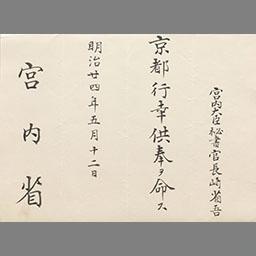 宮内大臣秘書官長崎省吾
京都行幸供奉ヲ命ス
明治廿四年五月十二日
宮内省